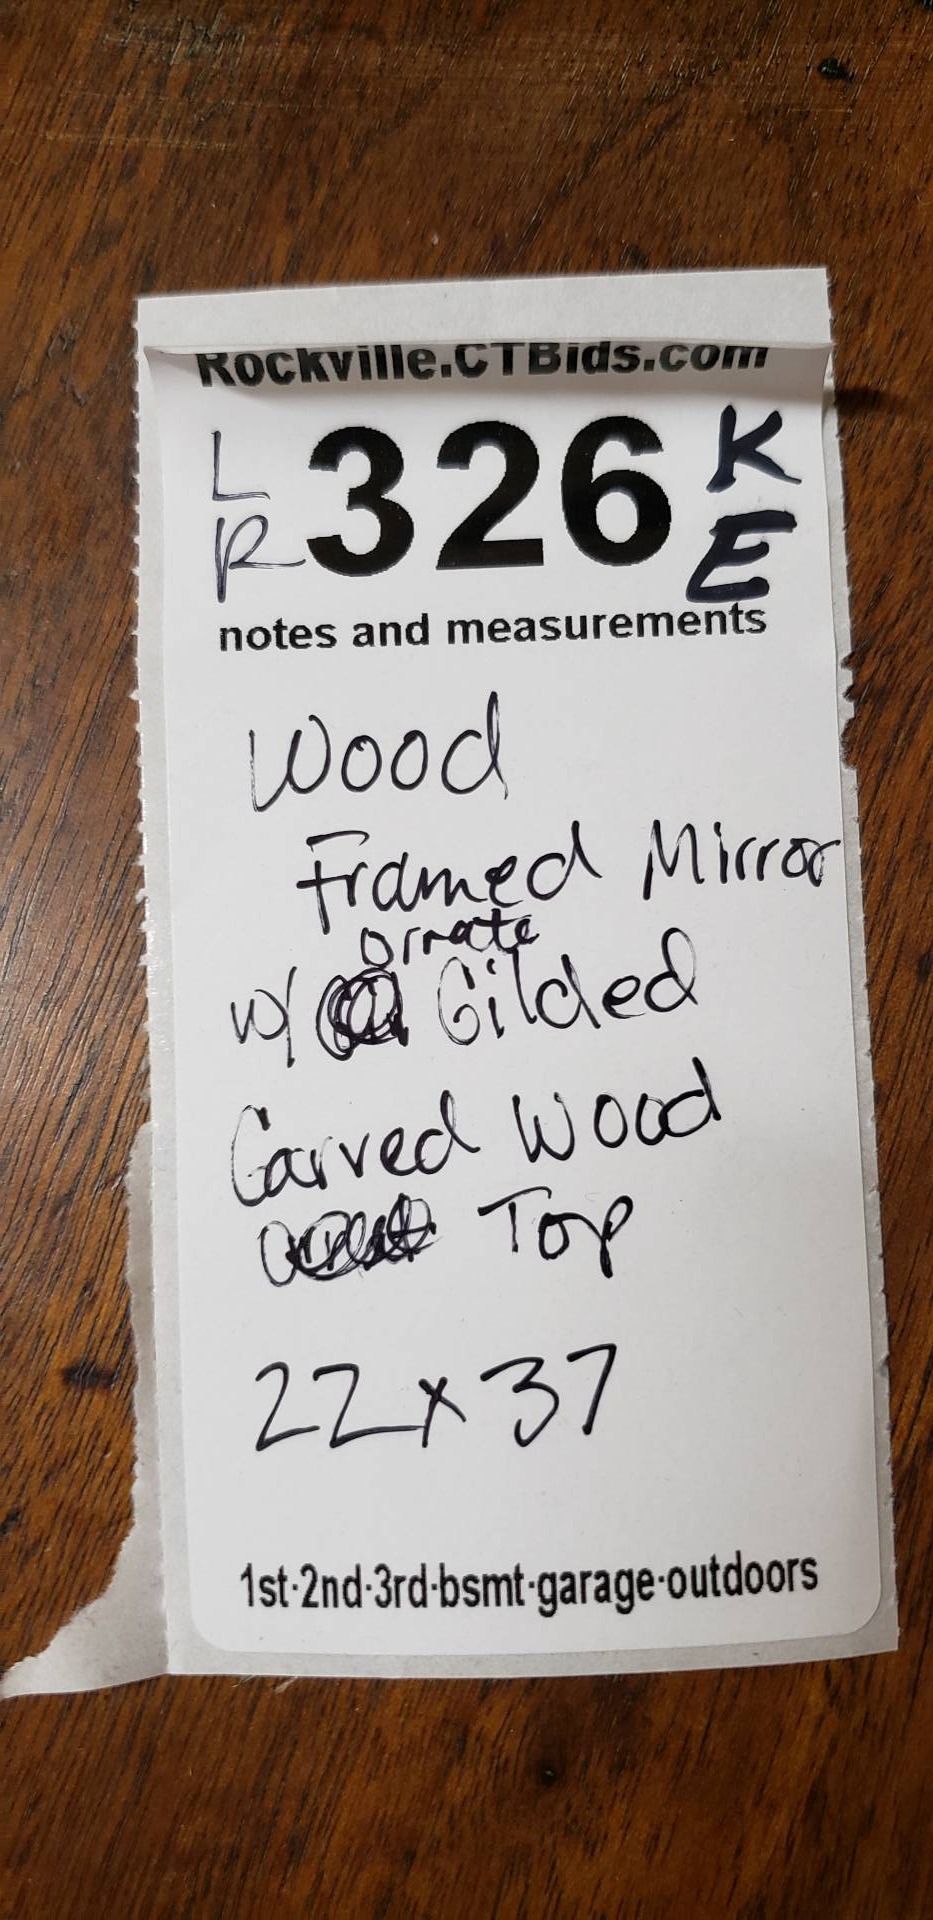 Rockville.CTBids.com
L 326 K
R E
notes and measurements
Wood
Framed Mirror
ornate
w/ Gilded
Carved Wood
Top
22x37
1st·2nd·3rd·bsmt·garage·outdoors